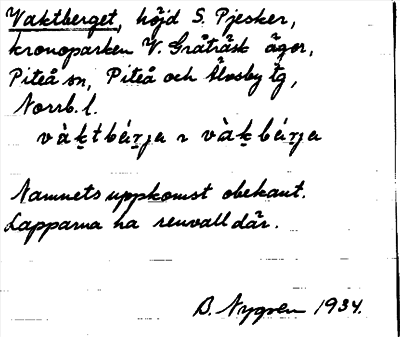 Vaktberget, höjd S. Pjesker,
kronoparken V. Gråträsk ägor,
Piteå sn, Piteå och Älvsby tg,
Norrb. l.
vàk̠tbár̠ja ɿ vàk̠bár̠ja
Namnets uppkomst obekant.
Lapparna ha renvall där.
B. Nygren 1934.